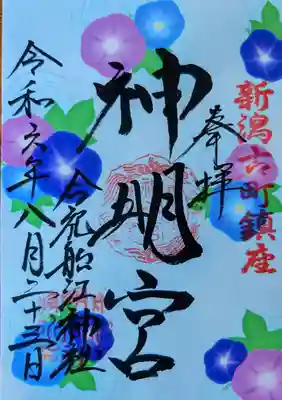 新潟古町鎮座
奉拝
神明宮
合殿船江神社
令和六年八月二十三日